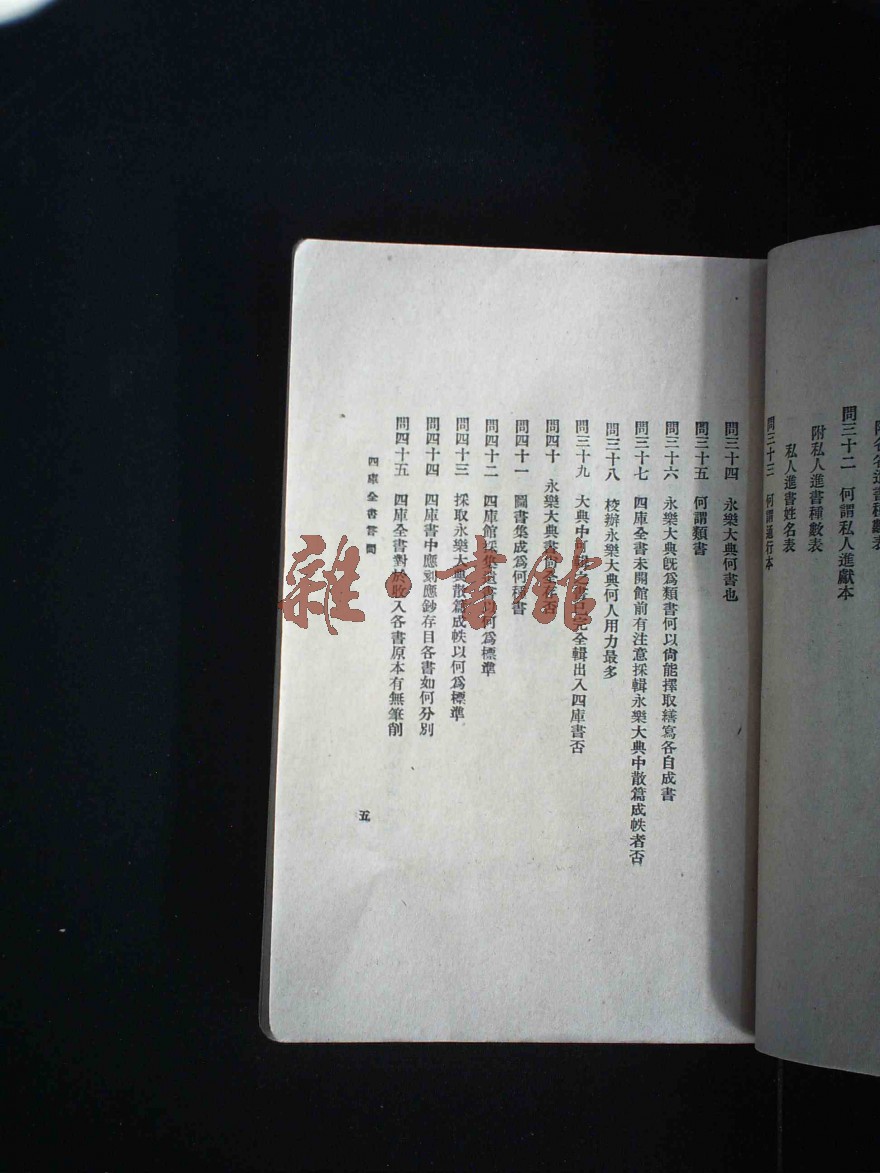 附各省進書種數表
問三十二　何謂私人進獻本
附私人進書種數表
私人進書姓名表
問三十三　何謂通行本
問三十四　永樂大典何書也
問三十五　何謂類書
問三十六　永樂大典旣爲類書何以尙能擇取繕寫各自成書
問三十七　四庫全書未開館前有注意採輯永樂大典中散篇成帙者否
問三十八　校辦永樂大典何人用力最多
問三十九　大典中可輯之書已完全輯出入四庫書否
問四十　永樂大典書尙全存否
問四十一　圖書集成爲何種書
問四十二　四庫館採集遺書以何爲標準
問四十三　採取永樂大典散篇成帙以何爲標準
問四十四　四庫書中應刻應鈔存目各書如何分別
問四十五　四庫全書對於收入各書原本有無筆削
四庫全書答問
五
雜·書館